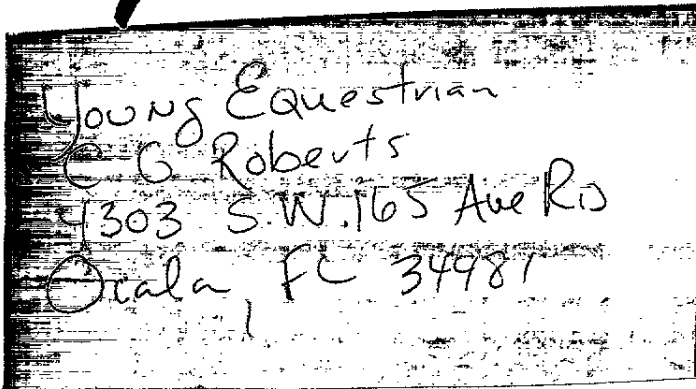 Young Equestrian
C G Roberts
4303 S.W. 165 Ave RD
Ocala, FL 34981